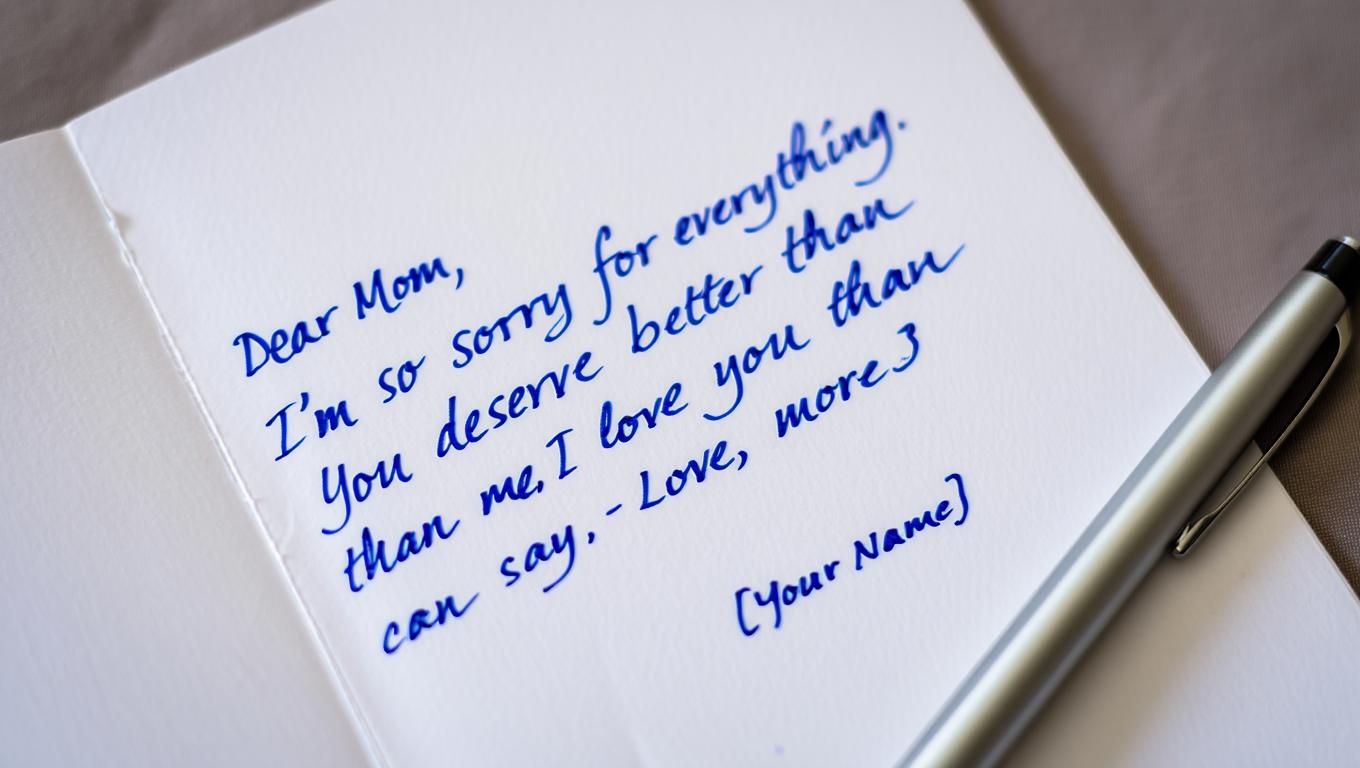 Dear Mom,
I'm so sorry for everything.
You deserve better than
than me. I love you than
can say, - Love, more3
[Your Name]